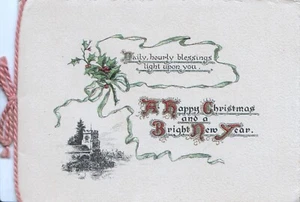 Daily, hourly blessings
light upon you.
A Happy Christmas
and a
Bright New Year.